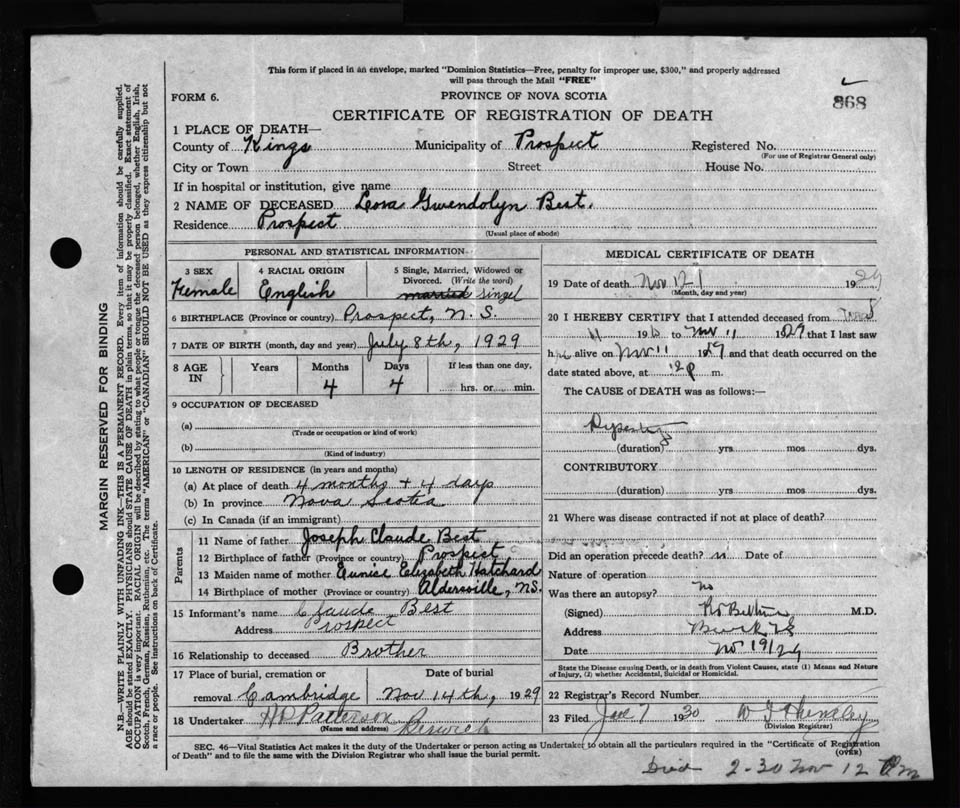 This form if placed in an envelope, marked "Dominion Statistics—Free, penalty for improper use, $300," and properly addressed
will pass through the Mail "FREE"
868
FORM 6.
PROVINCE OF NOVA SCOTIA
CERTIFICATE OF REGISTRATION OF DEATH
1 PLACE OF DEATH—
County of Kings Municipality of Prospect Registered No.
(For use of Registrar General only)
City or Town Street House No.
If in hospital or institution, give name
2 NAME OF DECEASED Leora Gwendolyn Best.
Residence Prospect
(Usual place of abode)
PERSONAL AND STATISTICAL INFORMATION
3 SEX
Female
4 RACIAL ORIGIN
English
5 Single, Married, Widowed or
Divorced. (Write the word)
married singel
6 BIRTHPLACE (Province or country) Prospect, N.S.
7 DATE OF BIRTH (month, day and year) July 8th, 1929
8 AGE IN
Years Months Days If less than one day,
4 4 hrs. or min.
9 OCCUPATION OF DECEASED
(a)
(Trade or occupation or kind of work)
(b)
(Kind of industry)
10 LENGTH OF RESIDENCE (in years and months)
(a) At place of death 4 months + 4 days
(b) In province Nova Scotia
(c) In Canada (if an immigrant)
Parents
11 Name of father Joseph Claude Best
12 Birthplace of father (Province or country) Prospect
13 Maiden name of mother Eunice Elizabeth Hatchard
14 Birthplace of mother (Province or country) Aldersville, N.S.
15 Informant's name Claude Best
Address Prospect
16 Relationship to deceased Brother
17 Place of burial, cremation or Date of burial
removal Cambridge Nov 14th, 1929
18 Undertaker H P Patterson Berwick
(Name and address)
MEDICAL CERTIFICATE OF DEATH
19 Date of death Nov 12 1929
(Month, day and year)
20 I HEREBY CERTIFY that I attended deceased from
11 19 to Nov 11 1929 that I last saw
h alive on Nov 11 1929 and that death occurred on the
date stated above, at 12 P m.
The CAUSE of DEATH was as follows:—
(duration) yrs mos dys.
CONTRIBUTORY
(duration) yrs mos dys.
21 Where was disease contracted if not at place of death?
Did an operation precede death? Date of
Nature of operation
Was there an autopsy? no
(Signed) M.D.
Address Berwick NS
Date Nov 19/29
State the Disease causing Death, or in death from Violent Causes, state (1) Means and Nature
of Injury, (2) whether Accidental, Suicidal or Homicidal.
22 Registrar's Record Number
23 Filed Jan 7 1930
(Division Registrar)
SEC. 46—Vital Statistics Act makes it the duty of the Undertaker or person acting as Undertaker to obtain all the particulars required in the "Certificate of Registration
of Death" and to file the same with the Division Registrar who shall issue the burial permit.
(OVER)
Died 2-30 Nov 12 P m
MARGIN RESERVED FOR BINDING
N.B.—WRITE PLAINLY WITH UNFADING INK—THIS IS A PERMANENT RECORD. Every item of information should be carefully supplied.
AGE should be stated EXACTLY. PHYSICIANS should STATE CAUSE OF DEATH in plain terms, so that it may be properly classified. Exact statement of
OCCUPATION is very important. RACIAL ORIGIN will be described by stating to what people or tongue the deceased person belonged, whether English, Irish,
Scotch, French, German, Russian, Ruthenian, etc. The terms "AMERICAN" or "CANADIAN" SHOULD NOT BE USED as they express citizenship but not
a race or people. See instructions on back of Certificate.